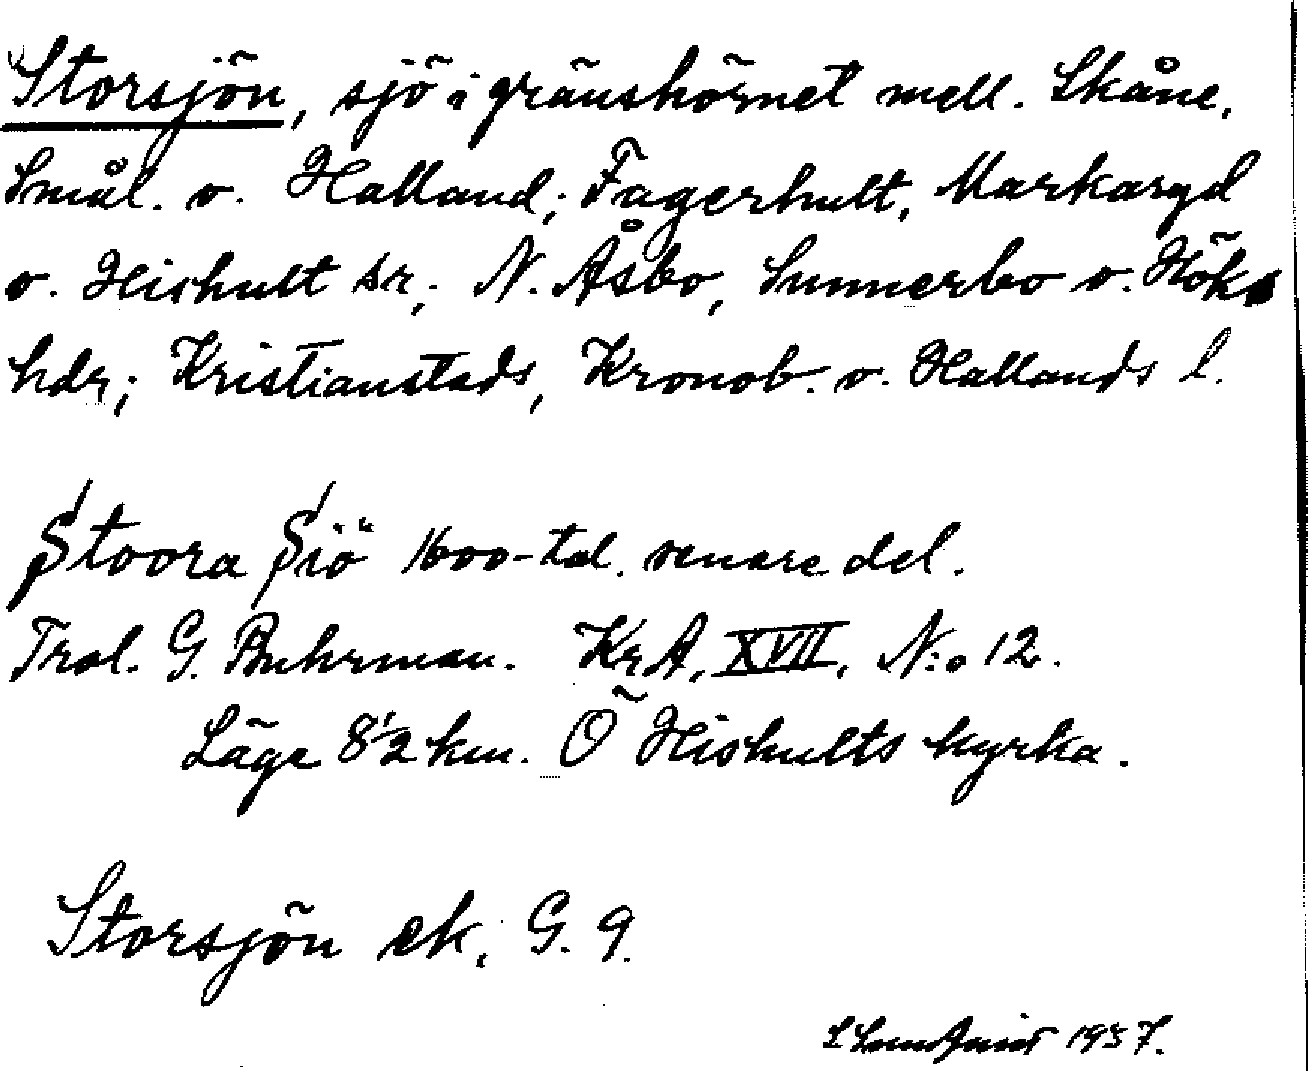 Storsjön, sjö i gränshörnet mell. Skåne,
Smål. o. Halland; Fagerhult, Markaryd
o. Hishult sr; N. Åsbo, Sunnerbo o. Höks
hdr; Kristianstads, Kronob. o. Hallands l.
Stoora Siö 1600-tal. senare del.
Trol. G. Buhrman. KrA, XVII, N:o 12.
Läge 8 1/2 km. Ö Hishults kyrka.
Storsjön ek. G. 9.
1937.